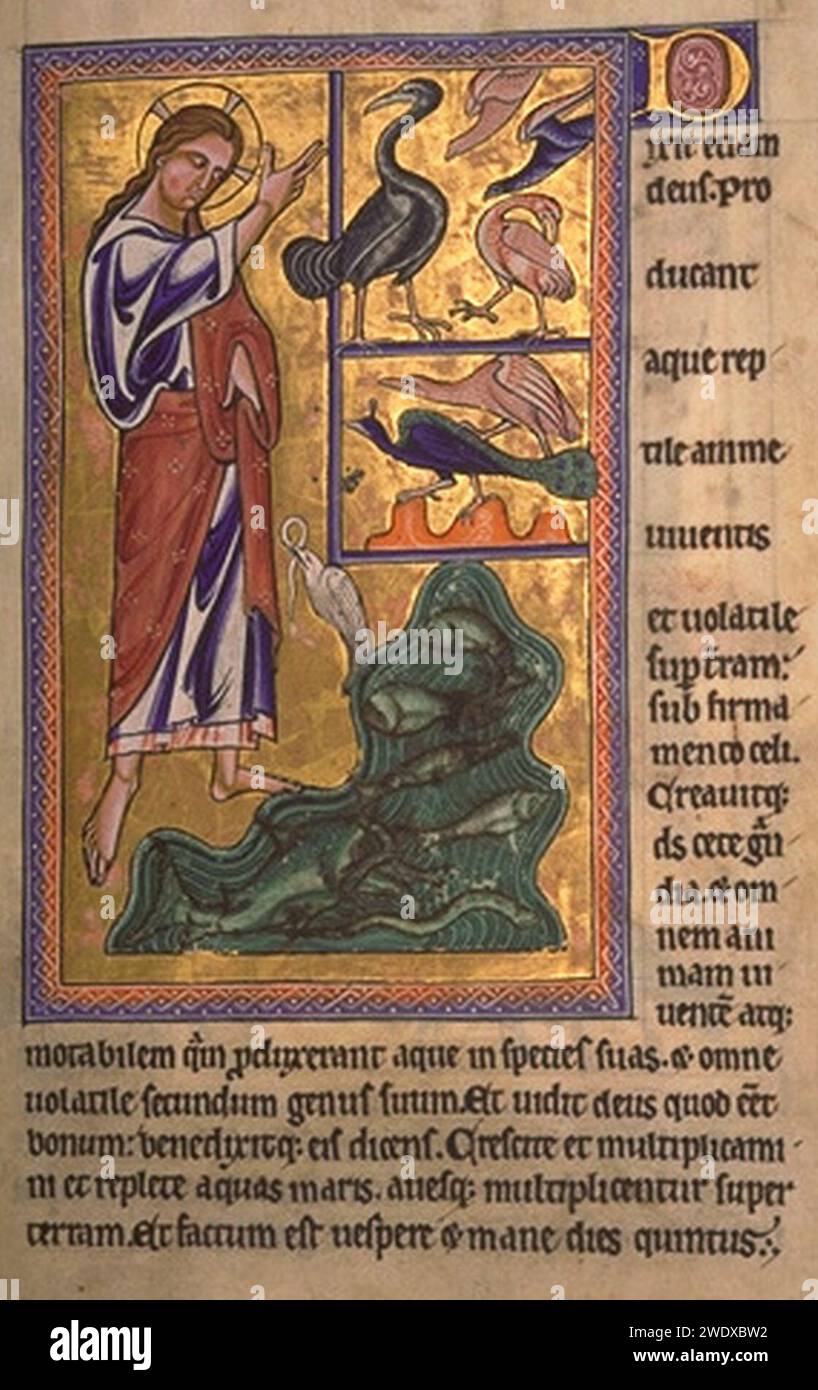 D
ixit etiam
deus. pro
ducant
aque rep
tile anime
uiuentis
et uolatile
sup t̄ram:
sub firma
mento celi.
Creauitq;
ds cete g̃n
dia. & om
nem ani
mam ui
uentē atq;
motabilem q̃m ꝓduxerant aque in species suas. & omne
uolatile secundum genus suum. Et uidit deus quod eēt
bonum: benedixitq; eis dicens. Crescite et multiplicami
ni et replete aquas maris. auesq; multiplicentur super
terram. Et factum est uespere & mane dies quintus:
alamy
Image ID: 2WDXBW2
www.alamy.com